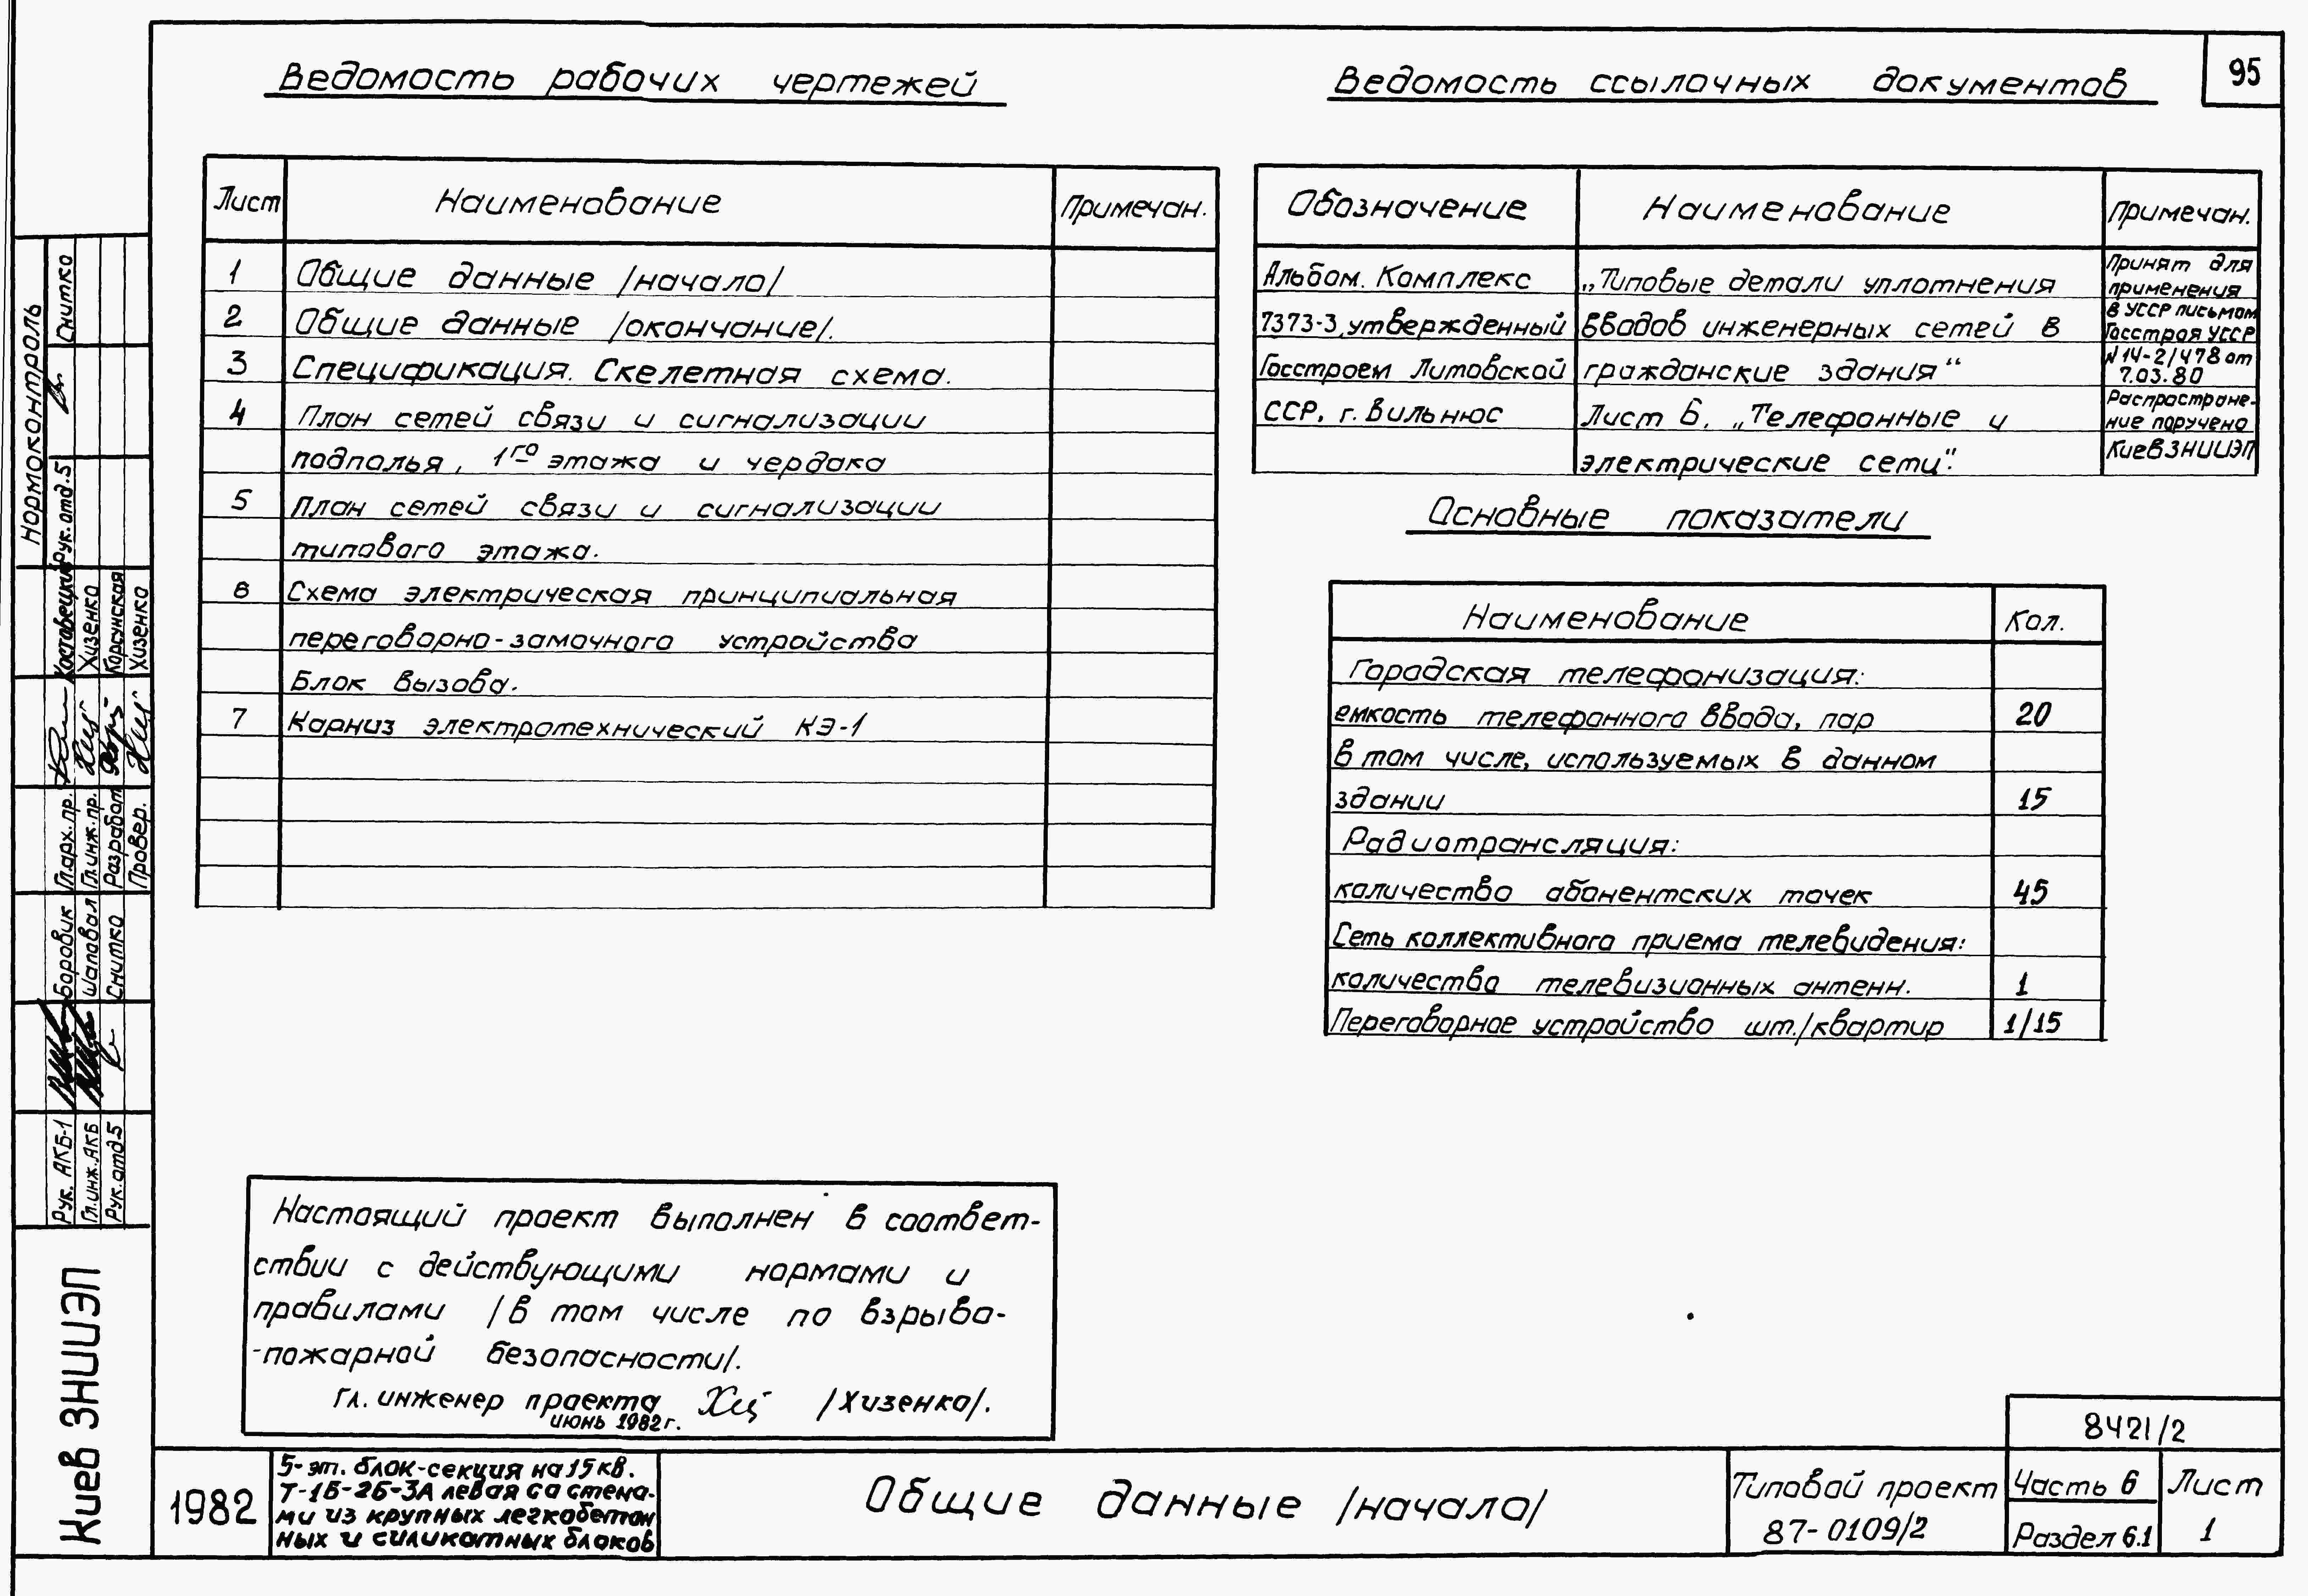 Ведомость рабочих чертежей
Лист Наименование Примечан.
1 Общие данные /начало/
2 Общие данные /окончание/.
3 Спецификация. Скелетная схема.
4 План сетей связи и сигнализации
подполья, 1го этажа и чердака
5 План сетей связи и сигнализации
типового этажа.
6 Схема электрическая принципиальная
переговорно-замочного устройства
Блок вызова.
7 Карниз электротехнический КЭ-1
Ведомость ссылочных документов
95
Обозначение Наименование Примечан.
Альбом. Комплекс „Типовые детали уплотнения
7373-3, утвержденный вводов инженерных сетей в
Госстроем Литовской гражданские здания“
ССР, г. Вильнюс Лист 6. „Телефонные и
электрические сети“.
Принят для
применения
в УССР письмом
Госстроя УССР
N 14-2/478 от
7.03.80
Распростране-
ние поручено
КиевЗНИИЭП
Основные показатели
Наименование Кол.
Городская телефонизация:
емкость телефонного ввода, пар 20
в том числе, используемых в данном
здании 15
Радиотрансляция:
количество абонентских точек 45
Сеть коллективного приема телевидения:
количество телевизионных антенн. 1
Переговорное устройство шт./квартир 1/15
Настоящий проект выполнен в соответ-
ствии с действующими нормами и
правилами /в том числе по взрыво-
-пожарной безопасности/.
Гл. инженер проекта /Хизенко/.
июнь 1982 г.
нормоконтроль
Рук. отд. 5 Снитко
Гл.арх.пр. Костовецкий
Гл.инж.пр. Хизенко
Разработ Корсунская
Провер. Хизенко
Рук. АКБ-1 Боровик
Гл.инж.АКБ Шаповал
Рук.отд5 Снитко
Киев ЗНИИЭП
1982
5-эт. блок-секция на 15 кв.
Т-1Б-2Б-3А левая со стена-
ми из крупных легкобетон
ных и силикатных блоков
Общие данные /начало/
Типовой проект
87-0109/2
8421/2
Часть 6
Раздел 6.1
Лист
1